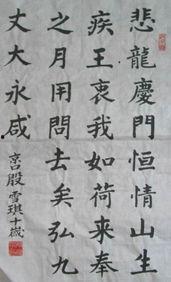 悲龍慶門恒情山生
疾王衷我如荷来奉
之月用問去矣弘九
丈大永咸
京口殷雪琪十歲